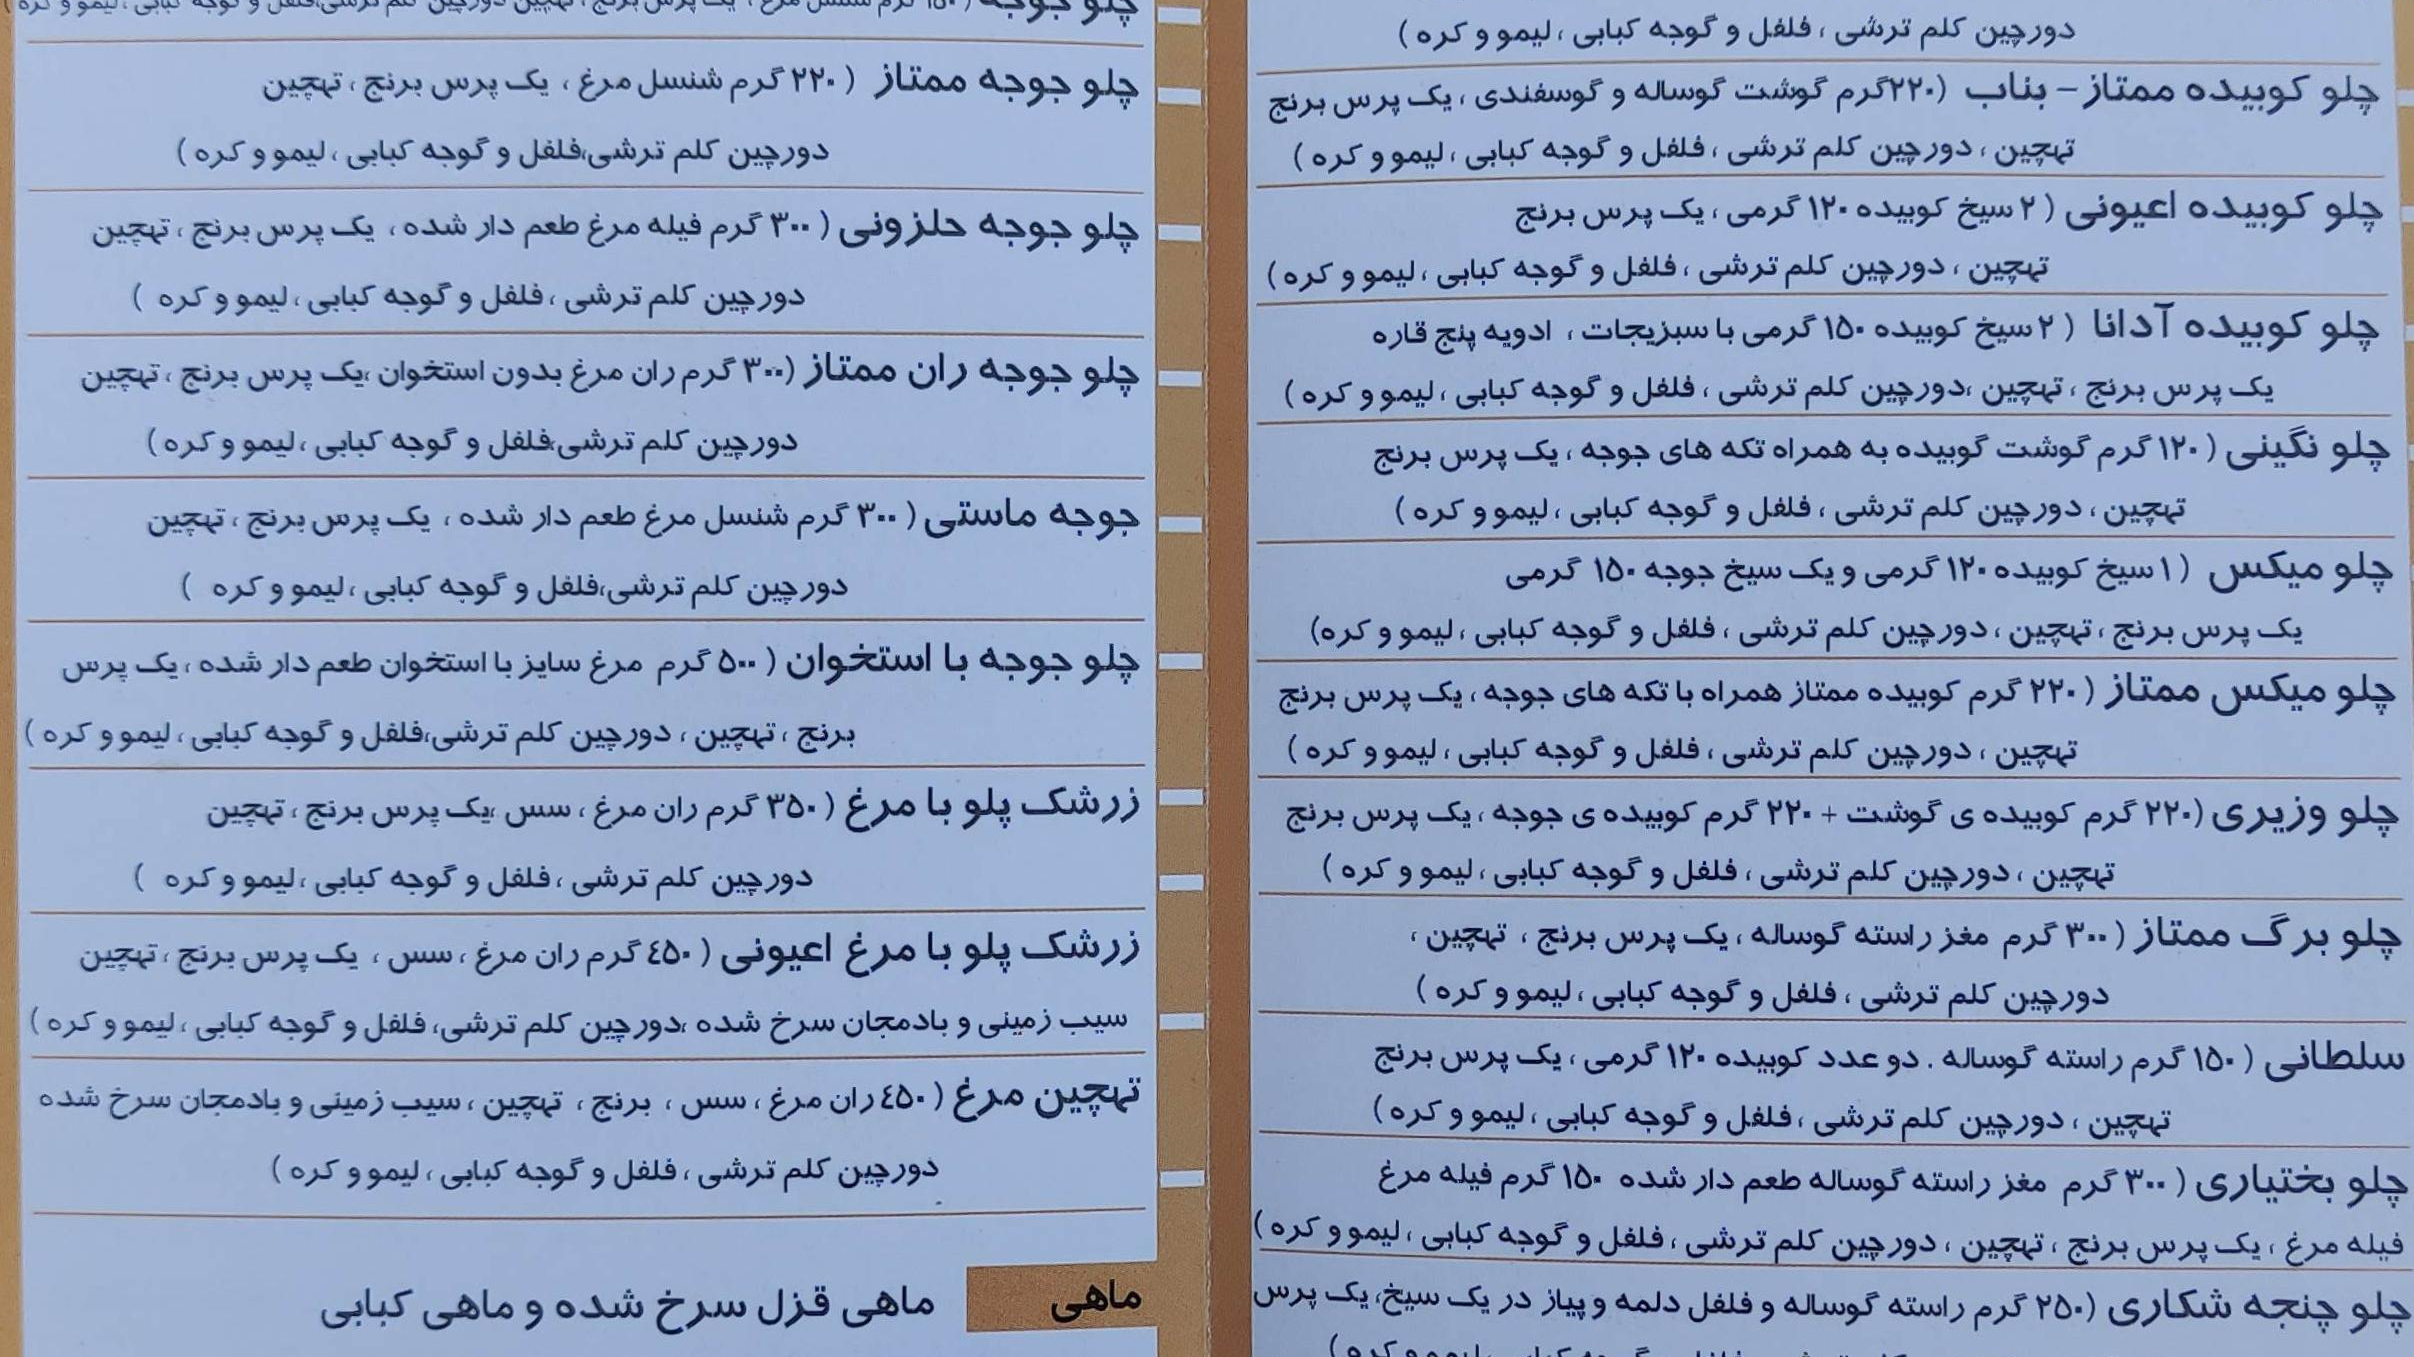 دورچین کلم ترشی ، فلفل و گوجه کبابی ، لیمو و کره )
چلو کوبیده ممتاز - بناب ( ۲۲۰گرم گوشت گوساله و گوسفندی ، یک پرس برنج
تهچین ، دورچین کلم ترشی ، فلفل و گوجه کبابی ، لیمو و کره )
چلو کوبیده اعیونی ( ۲ سیخ کوبیده ۱۲۰ گرمی ، یک پرس برنج
تهچین ، دورچین کلم ترشی ، فلفل و گوجه کبابی ، لیمو و کره )
چلو کوبیده آدانا ( ۲ سیخ کوبیده ۱۵۰ گرمی با سبزیجات ، ادویه پنج قاره
یک پرس برنج ، تهچین ،دورچین کلم ترشی ، فلفل و گوجه کبابی ، لیمو و کره )
چلو نگینی ( ۱۲۰ گرم گوشت گوبیده به همراه تکه های جوجه ، یک پرس برنج
تهچین ، دورچین کلم ترشی ، فلفل و گوجه کبابی ، لیمو و کره )
چلو میکس ( ۱ سیخ کوبیده ۱۲۰ گرمی و یک سیخ جوجه ۱۵۰ گرمی
یک پرس برنج ، تهچین ، دورچین کلم ترشی ، فلفل و گوجه کبابی ، لیمو و کره)
چلو میکس ممتاز ( ۲۲۰ گرم کوبیده ممتاز همراه با تکه های جوجه ، یک پرس برنج
تهچین ، دورچین کلم ترشی ، فلفل و گوجه کبابی ، لیمو و کره )
چلو وزیری (۲۲۰ گرم کوبیده ی گوشت + ۲۲۰ گرم کوبیده ی جوجه ، یک پرس برنج
تهچین ، دورچین کلم ترشی ، فلفل و گوجه کبابی ، لیمو و کره )
چلو برگ ممتاز ( ۳۰۰ گرم مغز راسته گوساله ، یک پرس برنج ، تهچین ،
دورچین کلم ترشی ، فلفل و گوجه کبابی ، لیمو و کره )
سلطانی ( ۱۵۰ گرم راسته گوساله . دو عدد کوبیده ۱۲۰ گرمی ، یک پرس برنج
تهچین ، دورچین کلم ترشی ، فلفل و گوجه کبابی ، لیمو و کره )
چلو بختیاری ( ۳۰۰ گرم مغز راسته گوساله طعم دار شده ۱۵۰ گرم فیله مرغ
فیله مرغ ، یک پرس برنج ، تهچین ، دورچین کلم ترشی ، فلفل و گوجه کبابی ، لیمو و کره )
چلو چنجه شکاری (۲۵۰ گرم راسته گوساله و فلفل دلمه و پیاز در یک سیخ، یک پرس
چلو جوجه ( ۱۵۰ گرم شنسل مرغ ، یک پرس برنج ، تهچین دورچین کلم ترشی،فلفل و گوجه کبابی ، لیمو و کره )
چلو جوجه ممتاز ( ۲۲۰ گرم شنسل مرغ ، یک پرس برنج ، تهچین
دورچین کلم ترشی،فلفل و گوجه کبابی ، لیمو و کره )
چلو جوجه حلزونی ( ۳۰۰ گرم فیله مرغ طعم دار شده ، یک پرس برنج ، تهچین
دورچین کلم ترشی ، فلفل و گوجه کبابی ، لیمو و کره )
چلو جوجه ران ممتاز (۳۰۰ گرم ران مرغ بدون استخوان ،یک پرس برنج ، تهچین
دورچین کلم ترشی،فلفل و گوجه کبابی ، لیمو و کره )
جوجه ماستی ( ۳۰۰ گرم شنسل مرغ طعم دار شده ، یک پرس برنج ، تهچین
دورچین کلم ترشی،فلفل و گوجه کبابی ، لیمو و کره )
چلو جوجه با استخوان ( ۵۰۰ گرم مرغ سایز با استخوان طعم دار شده ، یک پرس
برنج ، تهچین ، دورچین کلم ترشی،فلفل و گوجه کبابی ، لیمو و کره )
زرشک پلو با مرغ ( ۳۵۰ گرم ران مرغ ، سس ،یک پرس برنج ، تهچین
دورچین کلم ترشی ، فلفل و گوجه کبابی ، لیمو و کره )
زرشک پلو با مرغ اعیونی ( ٤۵۰ گرم ران مرغ ، سس ، یک پرس برنج ، تهچین
سیب زمینی و بادمجان سرخ شده ،دورچین کلم ترشی، فلفل و گوجه کبابی ، لیمو و کره )
تهچین مرغ ( ٤۵۰ ران مرغ ، سس ، برنج ، تهچین ، سیب زمینی و بادمجان سرخ شده
دورچین کلم ترشی ، فلفل و گوجه کبابی ، لیمو و کره )
ماهی
ماهی قزل سرخ شده و ماهی کبابی